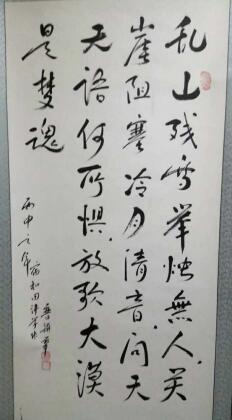 乱山残雪举烛無人关
崖阻寒冷月清音问天
天语何所惧放歌大漠
是梦魂
丙申之年